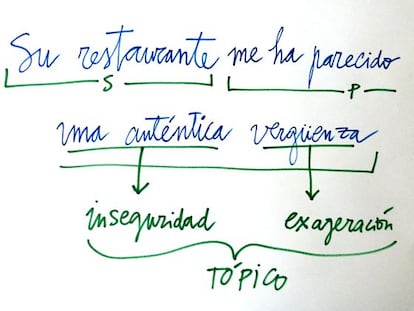 Su restaurante me ha parecido
S P
una auténtica vergüenza
inseguridad exageración
TÓPICO